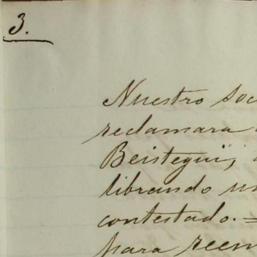 3.
Nuestro soc
reclamara
Beistegui,
librando un
contestado. =
para reem